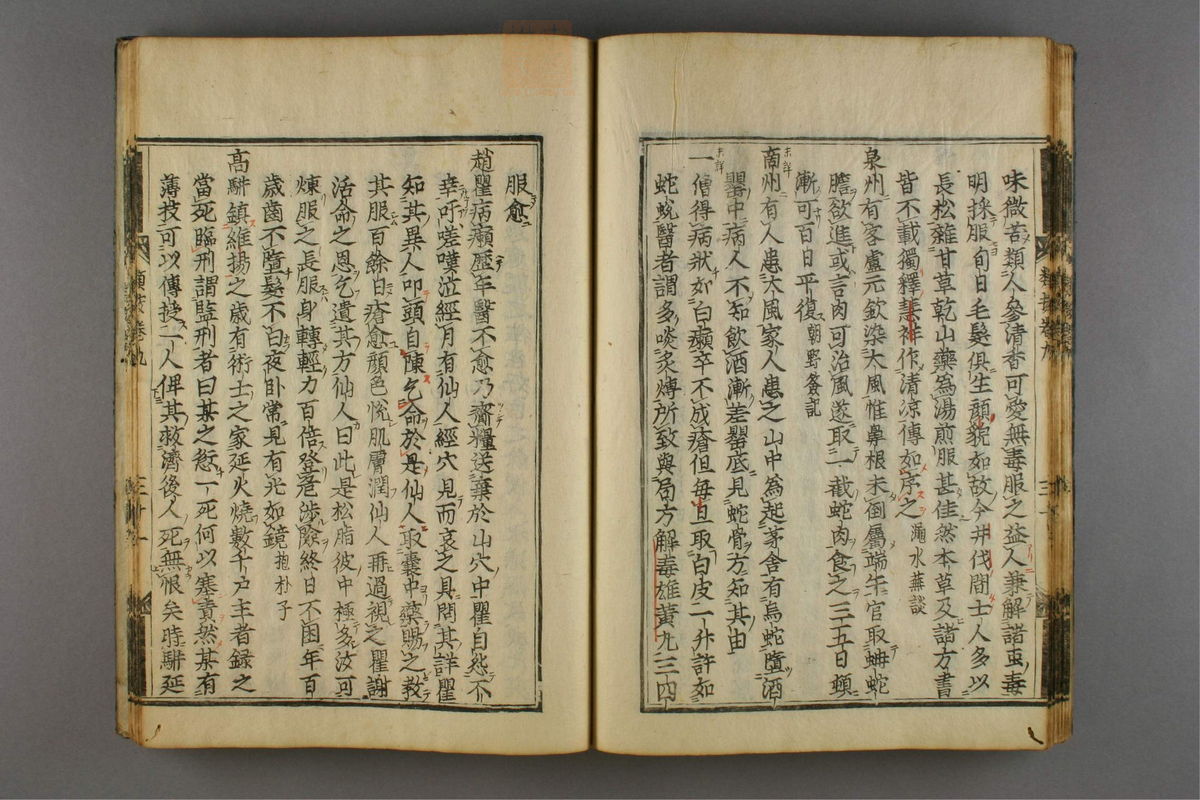 味微苦類人參清香可愛無毒服之益人兼解諸虫毒
明採服旬日毛髮俱生顏貌如故今并代間士人多以
長松雜甘草乾山藥爲湯煎服甚佳然本草及諸方書
皆不載獨釋慧祥作清凉傳如序之 澠水燕談
泉州有客盧元欽染大風惟鼻根未倒屬端午官取蚺蛇
膽欲進或言肉可治風遂取一截蛇肉食之三五日頓
漸可百日平復 朝野僉記
南州有人患大風家人患之山中爲起茅舍有烏蛇墮酒
未詳
罌中病人不知飲酒漸差罌底見蛇骨方知其由
未詳
一僧得病狀如白癩卒不成瘡但每旦取白皮二升許如
蛇蛻醫者謂多啖炙煿所致與局方解毒雄黃丸三四
服愈
趙瞿病癩歷年醫不愈乃齎糧送棄於山穴中瞿自怨不
幸吁嗟嘆泣經月有仙人經穴見而哀之具問其詳瞿
知其異人叩頭自陳乞命於是仙人取囊中藥賜之教
其服百餘日瘡愈顏色悅肌膚潤仙人再過視之瞿謝
活命之恩乞遺其方仙人曰此是松脂彼中極多汝可
煉服之長服身轉輕力百倍登危涉險終日不困年百
歲齒不墮髮不白夜卧常見有光如鏡 抱朴子
高駢鎮維揚之歲有術士之家延火燒數千户主者録之
當死臨刑謂監刑者曰某之愆一死何以塞責然某有
薄技可以傳授一人俾其救濟後人死無恨矣時駢延
類按卷九
三十一